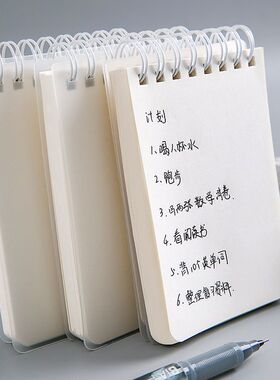 计划
1、喝八杯水
2、跑步
3、写两张数学试卷
4、看阅读书
5、背105英单词
6、整理复习资料.